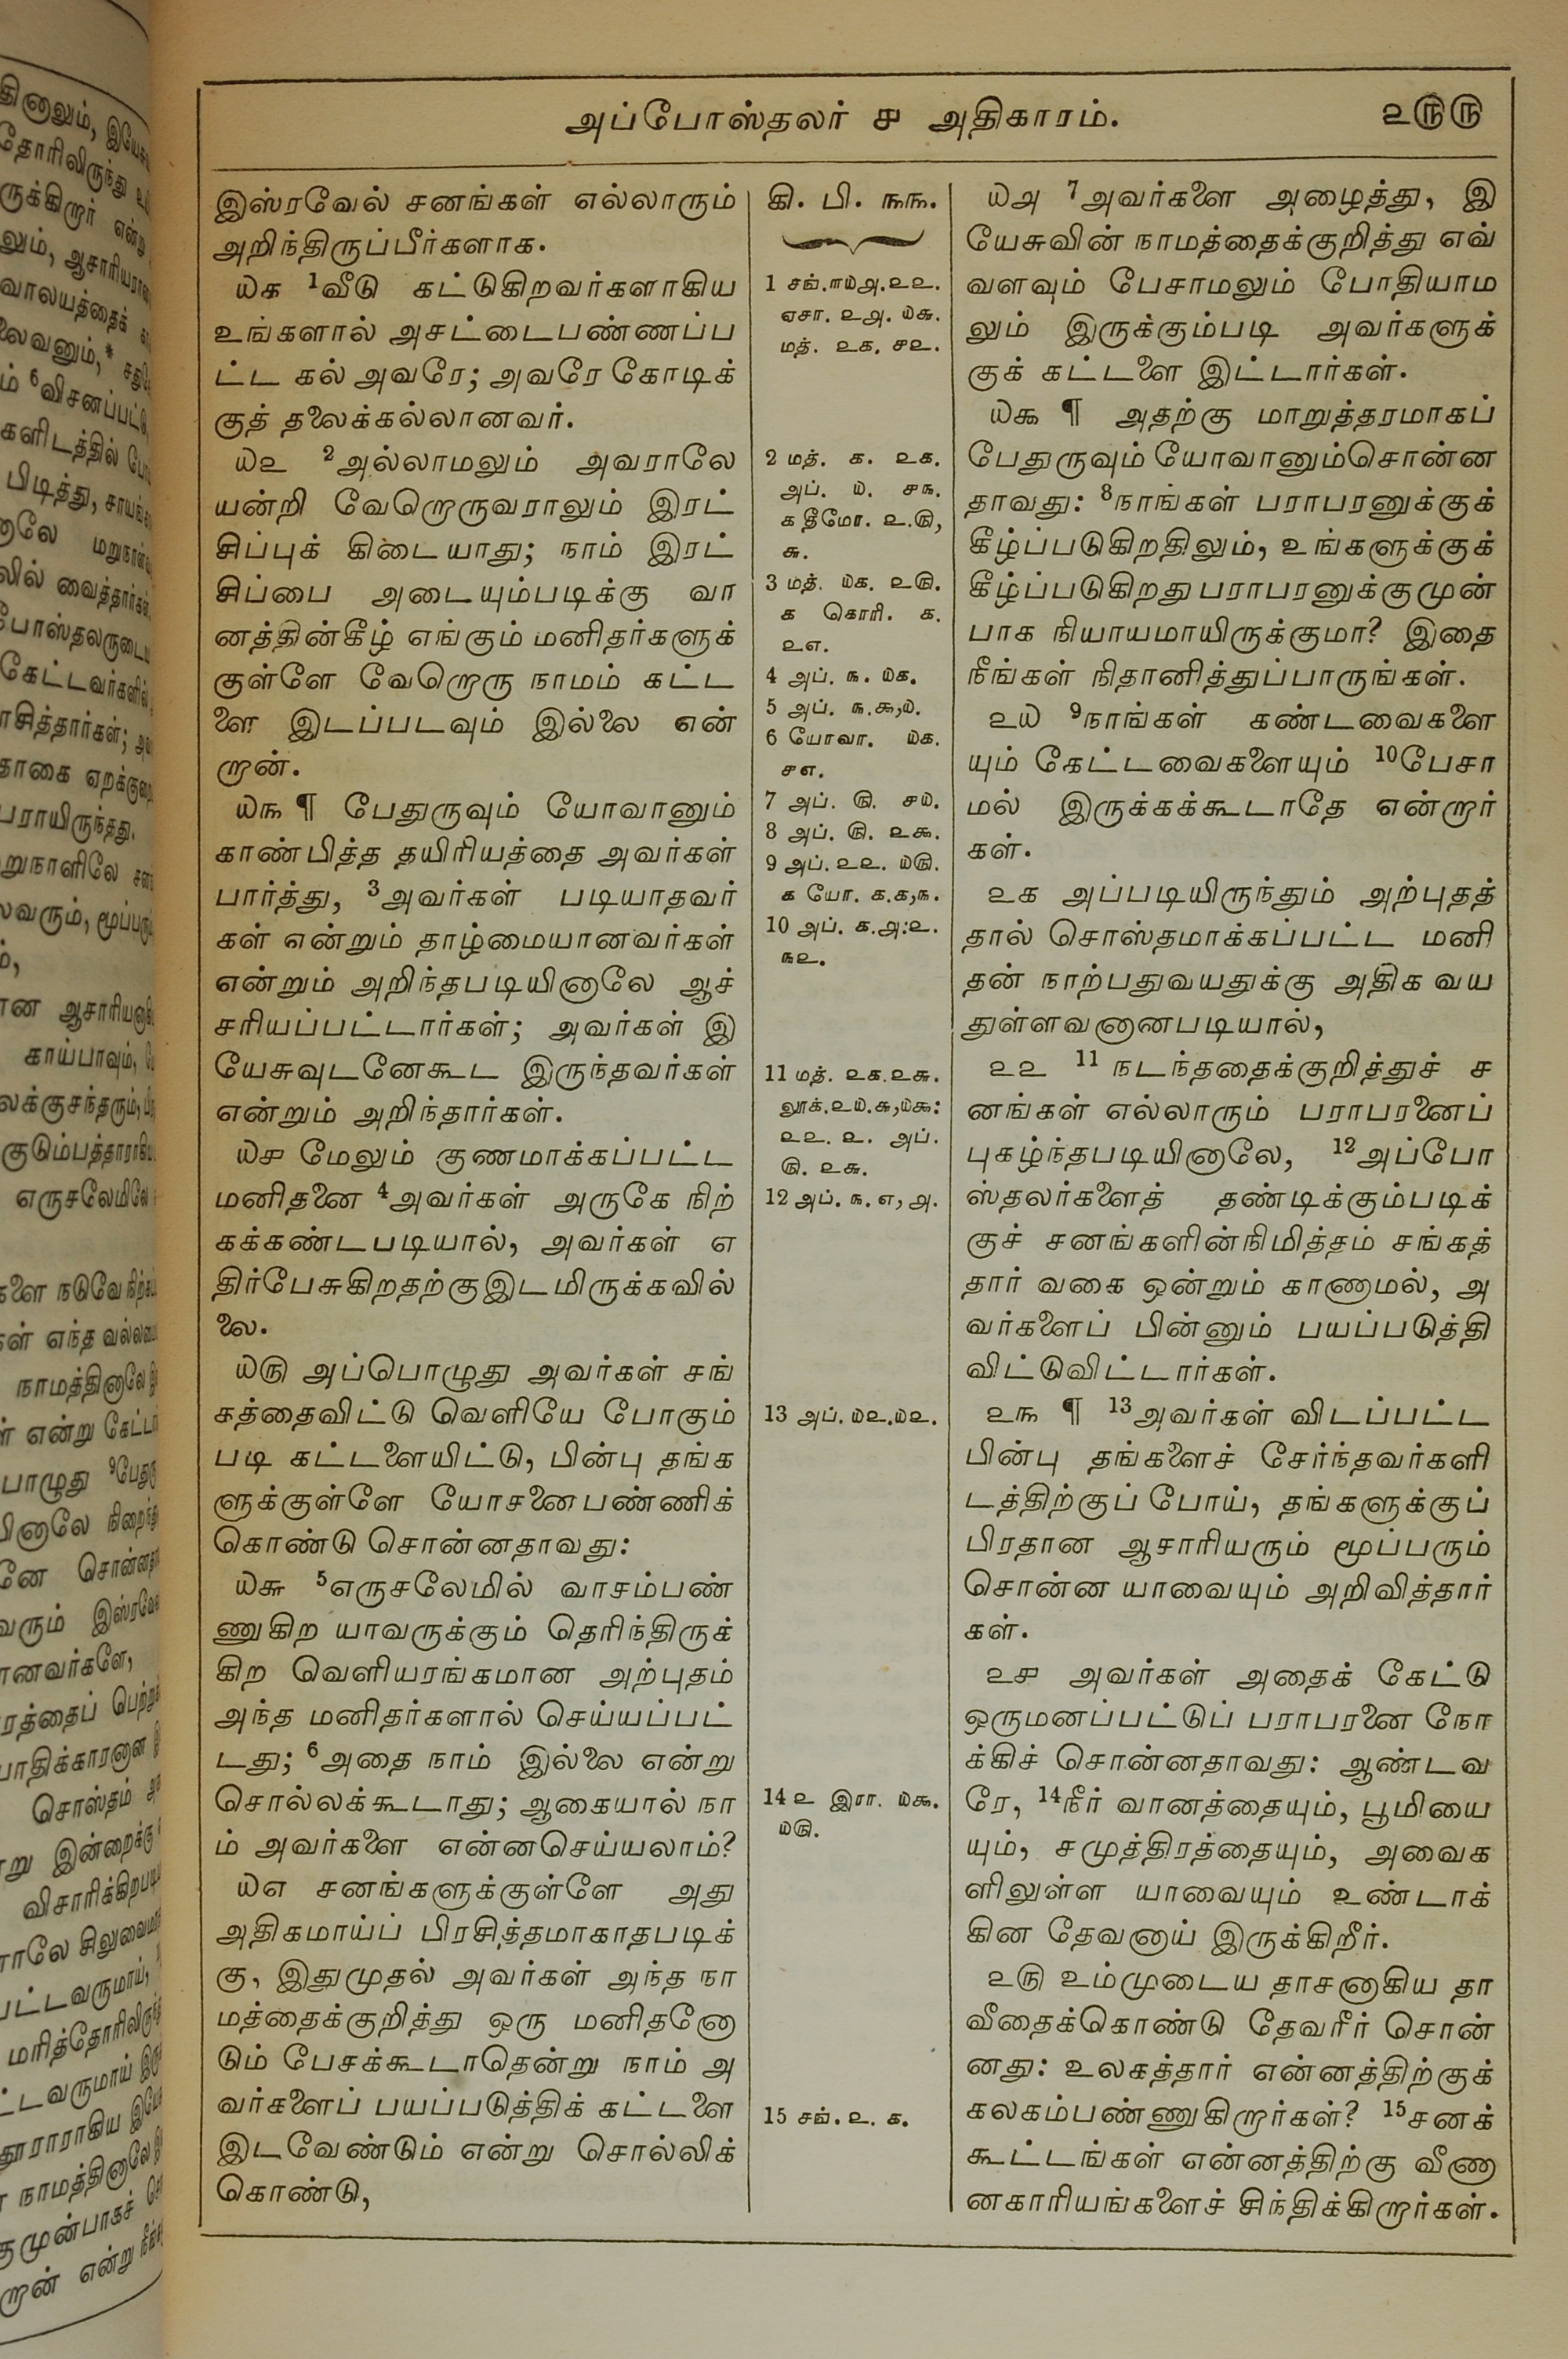 அப்போஸ்தலர் ௪ அதிகாரம்.
௨௫௫
இஸ்ரவேல் சனங்கள் எல்லாரும்
அறிந்திருப்பீர்களாக.
௰௧ 1வீடு கட்டுகிறவர்களாகிய
உங்களால் அசட்டைபண்ணப்ப
ட்ட கல் அவரே; அவரே கோடிக்
குத் தலைக்கல்லானவர்.
௰௨ 2அல்லாமலும் அவராலே
யன்றி வேறொருவராலும் இரட்
சிப்புக் கிடையாது; நாம் இரட்
சிப்பை அடையும்படிக்கு வா
னத்தின்கீழ் எங்கும் மனிதர்களுக்
குள்ளே வேறொரு நாமம் கட்ட
ளை இடப்படவும் இல்லை என்
றான்.
௰௩ ¶ பேதுருவும் யோவானும்
காண்பித்த தயிரியத்தை அவர்கள்
பார்த்து, 3அவர்கள் படியாதவர்
கள் என்றும் தாழ்மையானவர்கள்
என்றும் அறிந்தபடியினாலே ஆச்
சரியப்பட்டார்கள்; அவர்கள் இ
யேசுவுடனேகூட இருந்தவர்கள்
என்றும் அறிந்தார்கள்.
௰௪ மேலும் குணமாக்கப்பட்ட
மனிதனை 4அவர்கள் அருகே நிற்
கக்கண்டபடியால், அவர்கள் எ
திர்பேசுகிறதற்குஇடமிருக்கவில்
லை.
௰௫ அப்பொழுது அவர்கள் சங்
கத்தைவிட்டு வெளியே போகும்
படி கட்டளையிட்டு, பின்பு தங்க
ளுக்குள்ளே யோசனைபண்ணிக்
கொண்டு சொன்னதாவது:
௰௬ 5எருசலேமில் வாசம்பண்
ணுகிற யாவருக்கும் தெரிந்திருக்
கிற வெளியரங்கமான அற்புதம்
அந்த மனிதர்களால் செய்யப்பட்
டது; 6அதை நாம் இல்லை என்று
சொல்லக்கூடாது; ஆகையால் நா
ம் அவர்களை என்னசெய்யலாம்?
௰௭ சனங்களுக்குள்ளே அது
அதிகமாய்ப் பிரசித்தமாகாதபடிக்
கு, இதுமுதல் அவர்கள் அந்த நா
மத்தைக்குறித்து ஒரு மனிதனோ
டும் பேசக்கூடாதென்று நாம் அ
வர்களைப் பயப்படுத்திக் கட்டளை
இடவேண்டும் என்று சொல்லிக்
கொண்டு,
கி. பி. ௩௩.
1 சங்.௱௰௮.௨௨.
ஏசா. ௨௮. ௰௬.
மத். ௨௧. ௪௨.
2 மத். ௧. ௨௧.
அப். ௰. ௪௩.
௧ தீமோ. ௨.௫,
௬.
3 மத். ௰௧. ௨௫.
௧ கொரி. ௧.
௨௭.
4 அப். ௩. ௰௧.
5 அப். ௩.௯,௰.
6 யோவா. ௰௧.
௪௭.
7 அப். ௫. ௪௰.
8 அப். ௫. ௨௯.
9 அப். ௨௨. ௰௫.
௧ யோ. ௧.௧,௩.
10 அப். ௧.௮:௨.
௩௨.
11 மத். ௨௧.௨௬.
லூக்.௨௰.௬,௰௯:
௨௨. ௨. அப்.
௫. ௨௬.
12 அப். ௩. ௭, ௮.
13 அப். ௰௨.௰௨.
14 ௨ இரா. ௰௯.
௰௫.
15 சங். ௨. ௧.
௰௮ 7அவர்களை அழைத்து, இ
யேசுவின் நாமத்தைக்குறித்து எவ்
வளவும் பேசாமலும் போதியாம
லும் இருக்கும்படி அவர்களுக்
குக் கட்டளை இட்டார்கள்.
௰௯ ¶ அதற்கு மாறுத்தரமாகப்
பேதுருவும் யோவானும்சொன்ன
தாவது: 8நாங்கள் பராபரனுக்குக்
கீழ்ப்படுகிறதிலும், உங்களுக்குக்
கீழ்ப்படுகிறது பராபரனுக்குமுன்
பாக நியாயமாயிருக்குமா? இதை
நீங்கள் நிதானித்துப்பாருங்கள்.
௨௰ 9நாங்கள் கண்டவைகளை
யும் கேட்டவைகளையும் 10பேசா
மல் இருக்கக்கூடாதே என்றார்
கள்.
௨௧ அப்படியிருந்தும் அற்புதத்
தால் சொஸ்தமாக்கப்பட்ட மனி
தன் நாற்பதுவயதுக்கு அதிக வய
துள்ளவனானபடியால்,
௨௨ 11 நடந்ததைக்குறித்துச் ச
னங்கள் எல்லாரும் பராபரனைப்
புகழ்ந்தபடியினாலே, 12அப்போ
ஸ்தலர்களைத் தண்டிக்கும்படிக்
குச் சனங்களின்நிமித்தம் சங்கத்
தார் வகை ஒன்றும் காணாமல், அ
வர்களைப் பின்னும் பயப்படுத்தி
விட்டுவிட்டார்கள்.
௨௩ ¶ 13அவர்கள் விடப்பட்ட
பின்பு தங்களைச் சேர்ந்தவர்களி
டத்திற்குப் போய், தங்களுக்குப்
பிரதான ஆசாரியரும் மூப்பரும்
சொன்ன யாவையும் அறிவித்தார்
கள்.
௨௪ அவர்கள் அதைக் கேட்டு
ஒருமனப்பட்டுப் பராபரனை நோ
க்கிச் சொன்னதாவது: ஆண்டவ
ரே, 14நீர் வானத்தையும், பூமியை
யும், சமுத்திரத்தையும், அவைக
ளிலுள்ள யாவையும் உண்டாக்
கின தேவனாய் இருக்கிறீர்.
௨௫ உம்முடைய தாசனாகிய தா
வீதைக்கொண்டு தேவரீர் சொன்
னது: உலகத்தார் என்னத்திற்குக்
கலகம்பண்ணுகிறார்கள்? 15சனக்
கூட்டங்கள் என்னத்திற்கு வீணா
னகாரியங்களைச் சிந்திக்கிறார்கள்.